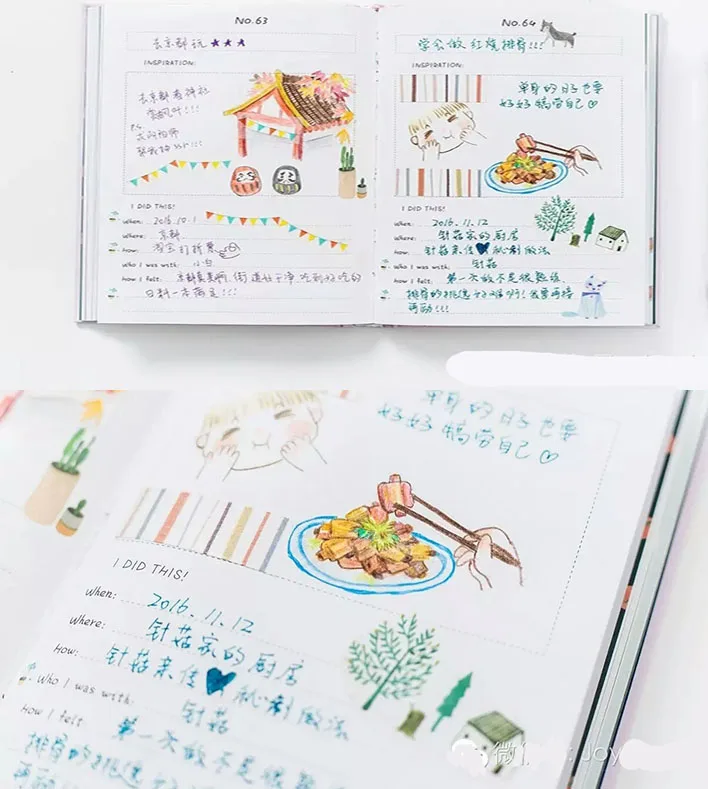 No.63
去京都玩★★★
INSPIRATION:
去京都看神社
赏枫叶!!!
P.S.
I DID THIS!
When: 2016.10.1
Where: 京都
How: 淘宝订机票
Who I was with: 小白
How I felt: 京都真美啊,街道好干净,吃到好吃的
日料一本满足!!!
No.64
学会做红烧排骨!!!
INSPIRATION:
单身的日子也要
好好犒劳自己♡
I DID THIS!
When: 2016.11.12
Where: 针菇家的厨房
How: 针菇亲传♥秘制做法
Who I was with: 针菇
How I felt: 第一次做不是很熟练,
排骨的挑选好难啊!我要再接
再励!!!
单身的日子也要
好好犒劳自己♡
I DID THIS!
When: 2016.11.12
Where: 针菇家的厨房
How: 针菇亲传♥秘制做法
Who I was with: 针菇
How I felt: 第一次做不是很熟
排骨的挑选好
再励!!!
微
: Joy